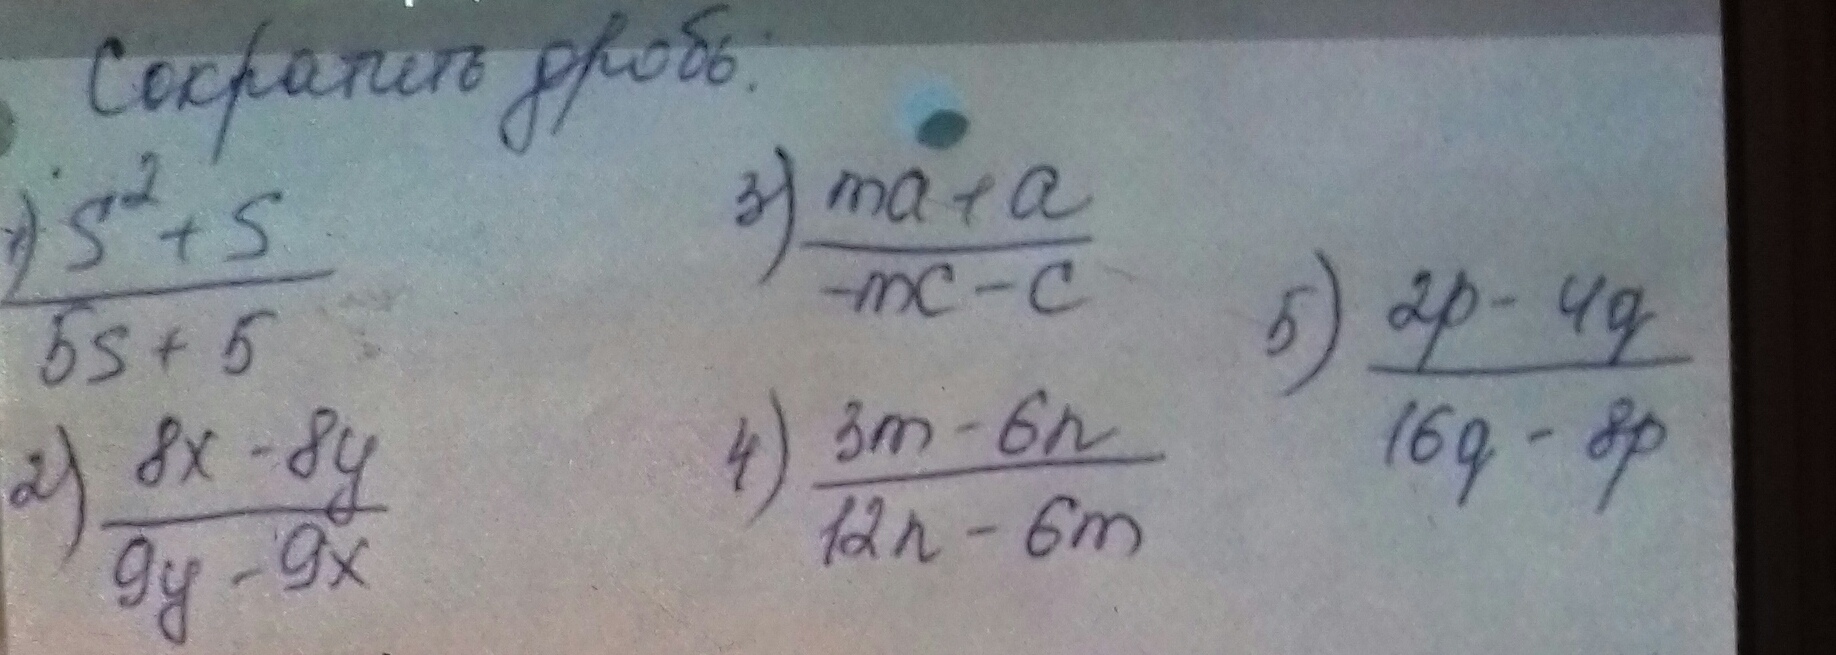 Сократить дробь:
1) (s² + s) / (5s + 5)
2) (8x - 8y) / (9y - 9x)
3) (ma + a) / (-mc - c)
4) (3m - 6n) / (12n - 6m)
5) (2p - 4q) / (16q - 8p)